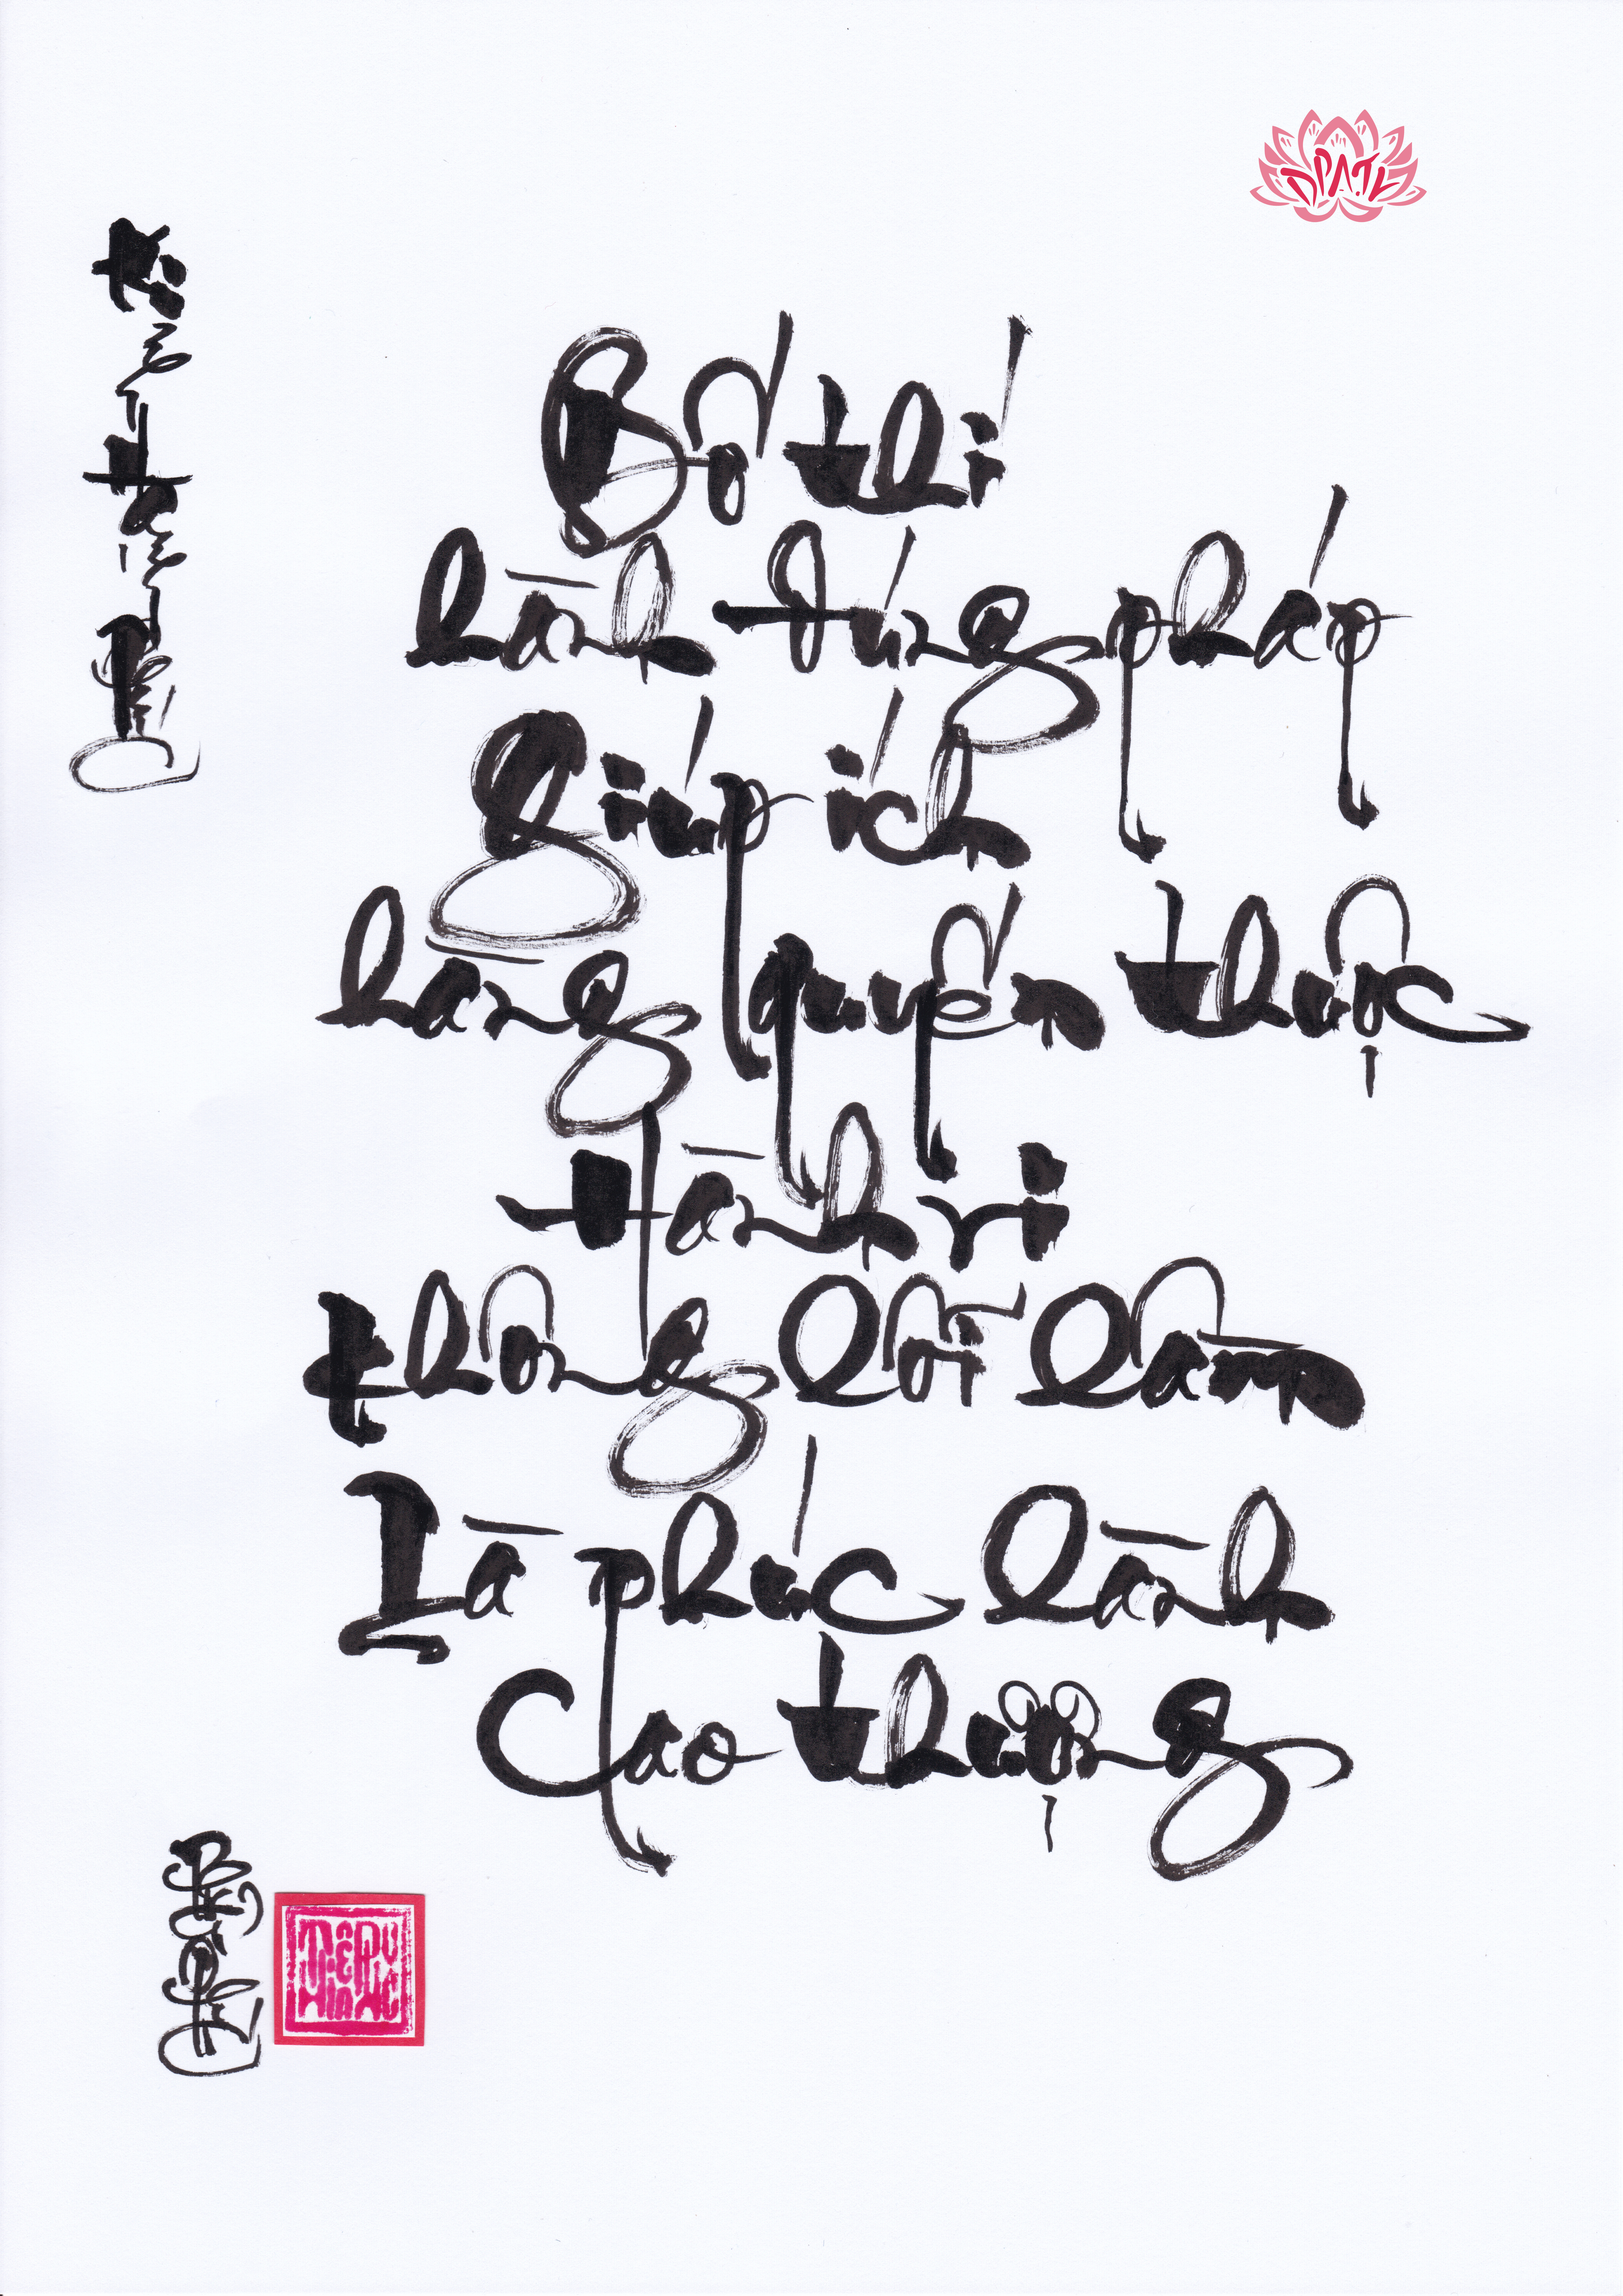 Bố thí
hành đúng pháp
Giúp ích
hàng quyến thuộc
Hành vi
không lỗi lầm
Là phúc lành
Cao thượng